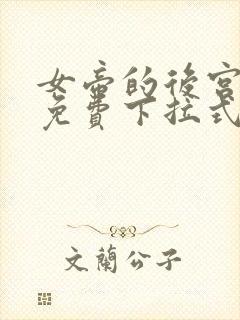 女帝的後宮
免費下拉式
文蘭公子